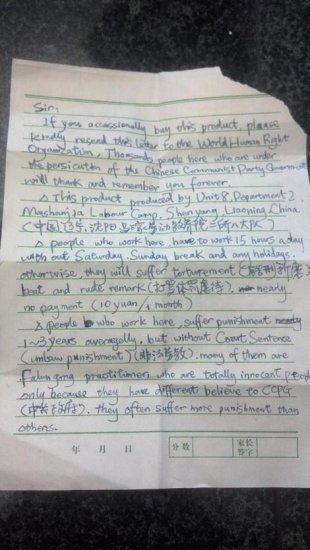 Sir:
If you occassionally buy this product, please
kindly resend this letter to the World Human Right
Organization. Thousands people here who are under
the persicution of the Chinese Communist Party Government
will thank and remember you forever.
△ This product produced by Unit 8, Department 2,
Masanjia Labour Camp, Shen yang, Liaoning, China.
people who work here, have to work 15 hours a day
with out Saturday, Sunday break and any holidays,
otherwise, they will suffer torturement
beat and rude remark (打骂体罚虐待), nearly
no payment (10 yuan/1 month)
△ people who work here, suffer punishment
1~3 years averagelly, but without Court Sentence
(unlaw punishment) (非法劳教), many of them are
Falungong practitioner, who are totally innocent people
only because they have different believe to CCPG
they often suffer more punishment than
others.
年 月 日 分数 家长签字